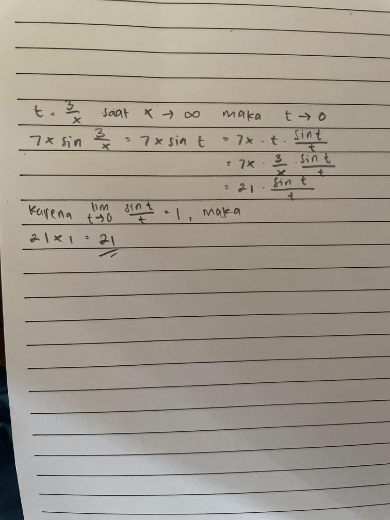 t = 3/x saat x → ∞ maka t → 0
7x sin 3/x = 7x sin t = 7x · t · sin t/t
= 7x · 3/x · sin t/t
= 21 · sin t/t
Karena lim t→0 sin t/t = 1, maka
21 x 1 = 21